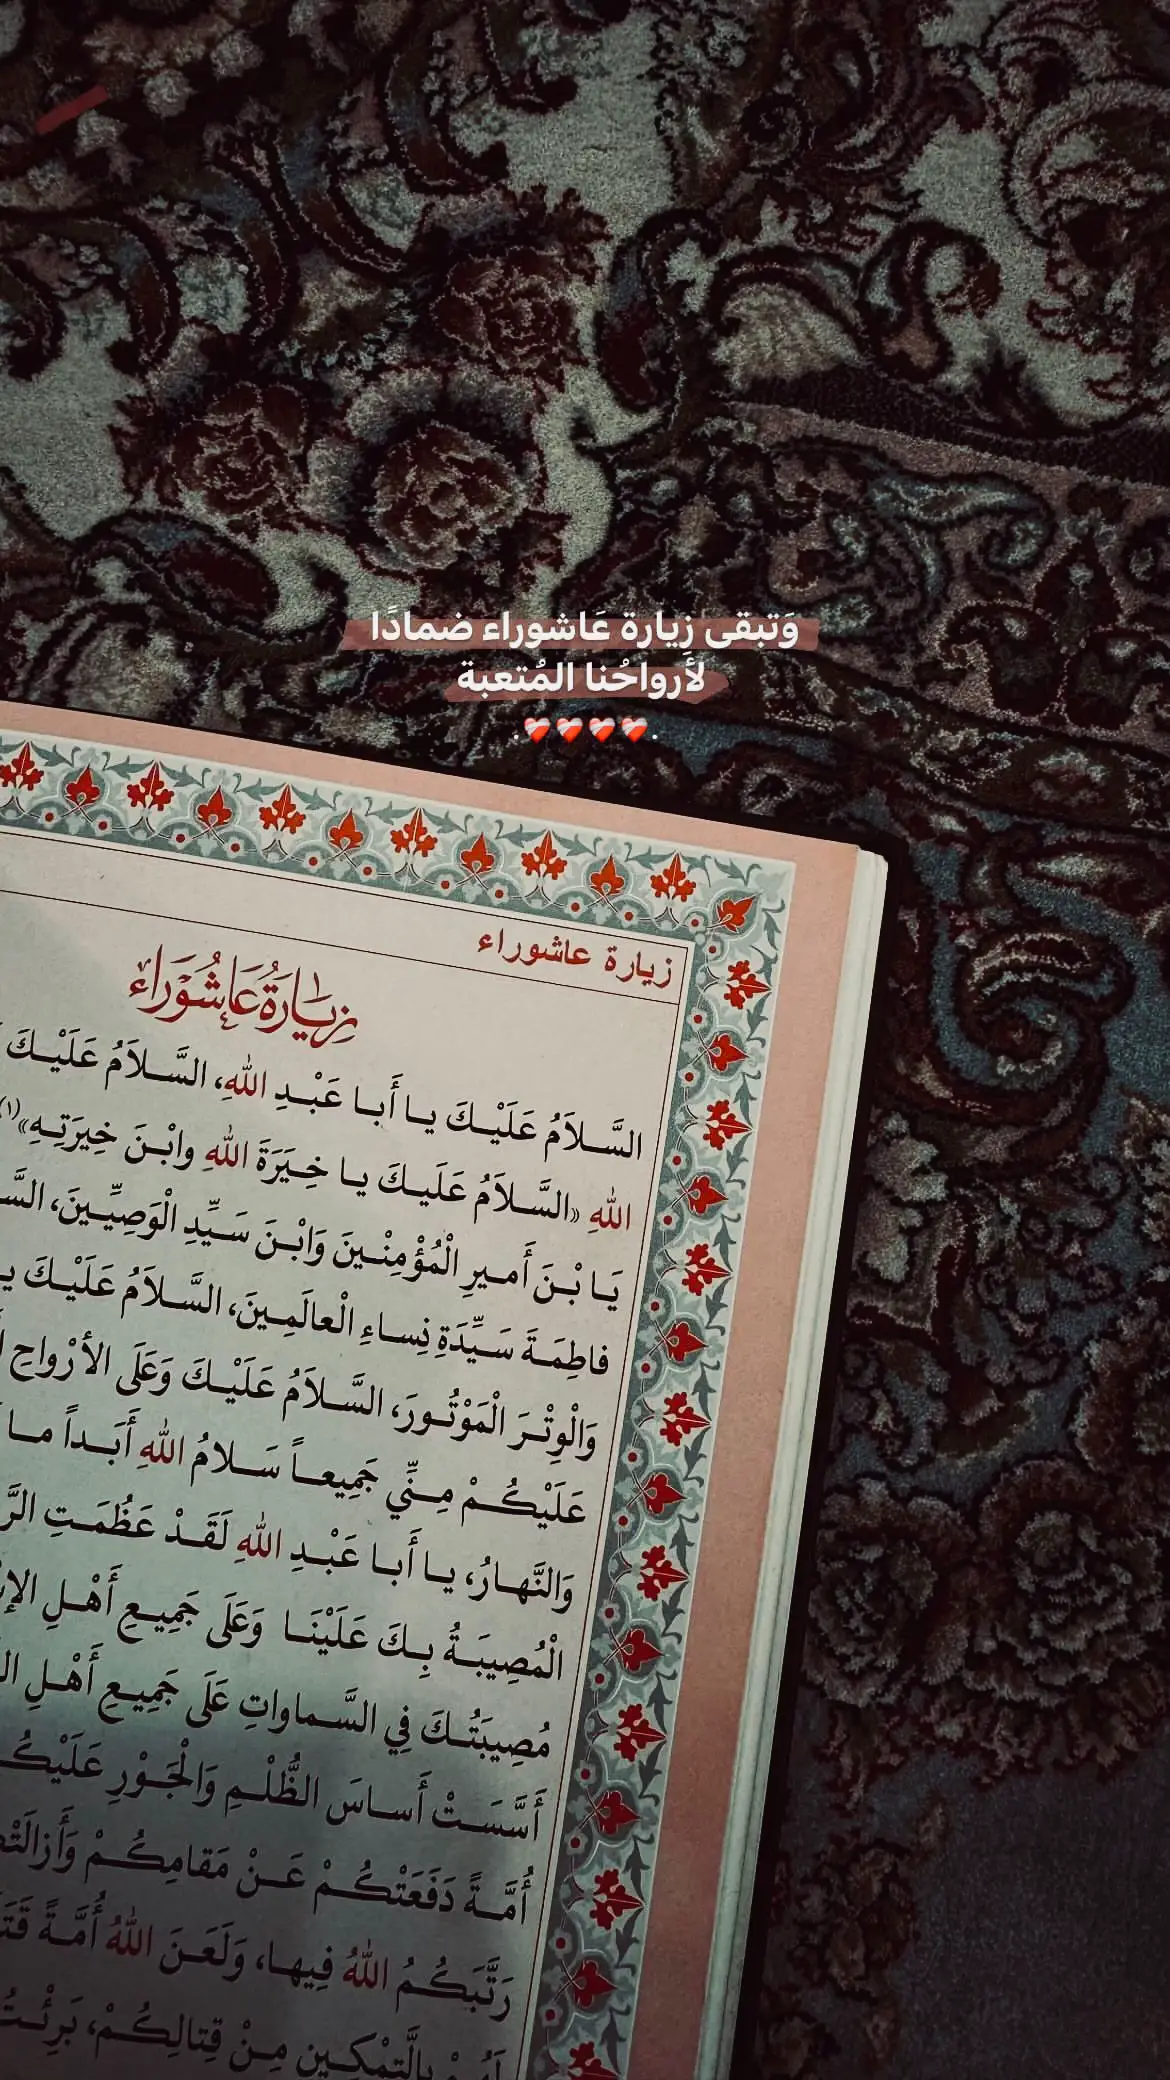 وَتبقى زِيارة عَاشوراء ضمادًا
لأَرواحُنا المُتعبة
.❤️‍🩹❤️‍🩹❤️‍🩹❤️‍🩹.
زيارة عاشوراء
زِيَارَةُ عَاشُورَاء
السَّـلاَمُ عَلَيْـكَ يـا أَبـا عَبْـدِ اللهِ، السَّـلاَمُ عَلَيْـكَ
اللهِ «السَّـلاَمُ عَلَيـكَ يـا خِـيَرَةَ اللهِ وابْـنَ خِيرَتِـهِ»(١)
يَـا بْـنَ أَمـيرِ الْمُؤْمِنْـينَ وَابْـنَ سَـيِّدِ الْوَصِيِّـينَ، السَّـ
فاطِمَـةَ سَـيِّدَةِ نِسـاءِ الْعالَمِـينَ، السَّـلاَمُ عَلَيْـكَ يـ
وَالْوِتْـرَ الْمَوْتُـورَ، السَّـلاَمُ عَلَيْـكَ وَعَلَى الأرْواحِ
عَلَيْكُـمْ مِـنِّي جَمِيعـاً سَـلامُ اللهِ أَبَـداً مـا
وَالنَّهـارُ، يـا أَبـا عَبْـدِ اللهِ لَقَـدْ عَظُمَـتِ الرَّ
الْمُصِيبَـةُ بِـكَ عَلَيْنَـا وَعَلَى جَمِيـعِ أَهْـلِ الإسْـ
مُصِيبَتُـكَ فِي السَّـماواتِ عَلَى جَمِيـعِ أَهْـلِ
أَسَّسَـتْ أَسـاسَ الظُّلْـمِ وَالْجَـوْرِ عَلَيْكُـ
أُمَّـةً دَفَعَتْكُـمْ عَـنْ مَقامِكُـمْ وَأَزالَتْكُـ
رَتَّبَكُـمُ اللهُ فِيهـا، وَلَعَـنَ اللهُ أُمَّـةً قَتَـ
لَهُـمْ بِالَّتمْكِـينِ مِـنْ قِتالِكُـمْ، بَرِئْـتُ